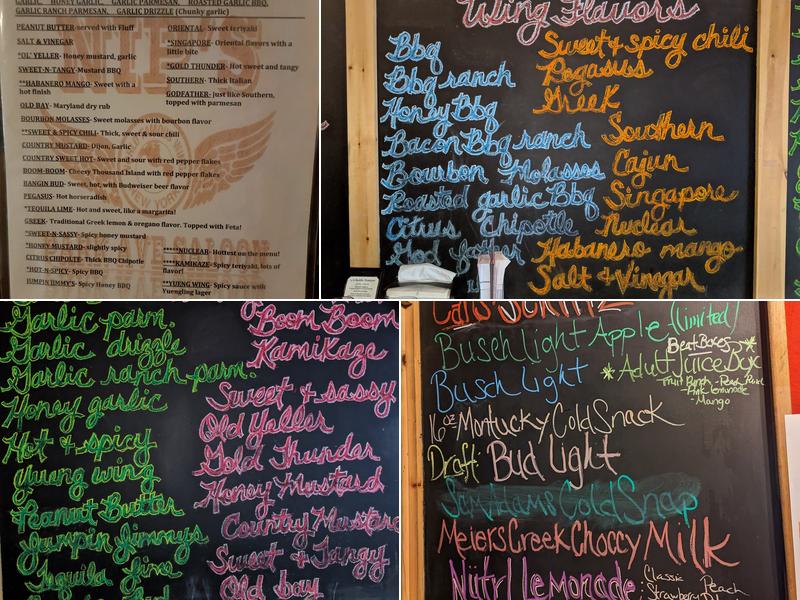 GARLIC, HONEY GARLIC, GARLIC PARMESAN, ROASTED GARLIC BBQ,
GARLIC RANCH PARMESAN, GARLIC DRIZZLE (Chunky garlic)
PEANUT BUTTER-served with Fluff
SALT & VINEGAR
"OL' YELLER- Honey mustard, garlic
SWEET-N-TANGY-Mustard BBQ
**HABANERO MANGO- Sweet with a
hot finish
OLD BAY- Maryland dry rub
BOURBON MOLASSES- Sweet molasses with bourbon flavor
**SWEET & SPICY CHILI- Thick, sweet & sour chili
COUNTRY MUSTARD- Dijon, Garlic
COUNTRY SWEET HOT- Sweet and sour with red pepper flakes
BOOM-BOOM- Cheesy Thousand Island with red pepper flakes
BANGIN BUD- Sweet, hot, with Budweiser beer flavor
PEGASUS- Hot horseradish
*TEQUILA LIME- Hot and sweet, like a margarita!
GREEK- Traditional Greek lemon & oregano flavor. Topped with Feta!
*SWEET-N-SASSY- Spicy honey mustard
*HONEY MUSTARD-slightly spicy
CITRUS CHIPOLTE- Thick BBQ Chipotle
*HOT-N-SPICY- Spicy BBQ
JUMPIN JIMMY'S- Spicy Honey BBQ
ORIENTAL- Sweet teriyaki
*SINGAPORE- Oriental flavors with a
little bite
*GOLD THUNDER- Hot sweet and tangy
SOUTHERN- Thick Italian
GODFATHER- just like Southern,
topped with parmesan
*****NUCLEAR- Hottest on the menu!
****KAMIKAZE- Spicy teriyaki, lots of
flavor!
**YUENG WING- Spicy sauce with
Yuengling lager
NEW YORK
Wing Flavors
Bbq
Bbq ranch
Honey Bbq
Bacon Bbq ranch
Bourbon Molasses
Roasted garlic Bbq
Citrus Chipotle
God father
Sweet & spicy chili
Pegasus
Greek
Southern
Cajun
Singapore
Nuclear
Habanero mango
Salt & Vinegar
Garlic parm.
Garlic drizzle
Garlic ranch parm.
Honey garlic
Hot & spicy
Yuung wing
Peanut Butter
Jumpin Jimmys
Tequila lime
Boom Boom
Kamikaze
Sweet & sassy
Old Yeller
Gold Thunder
Honey Mustard
Country Mustard
Sweet & Tangy
Old bay
Busch Light Apple -(limited)
Busch Light
BeatBoxes
*Adult Juice Box*
Fruit Punch
- Pink lemonade
- Mango
16oz Montucky Cold Snack
Draft: Bud Light
Sam Adams Cold Snap
Meiers Creek Choccy Milk
Nütrl Lemonade:
Classic
Peach
Strawberry